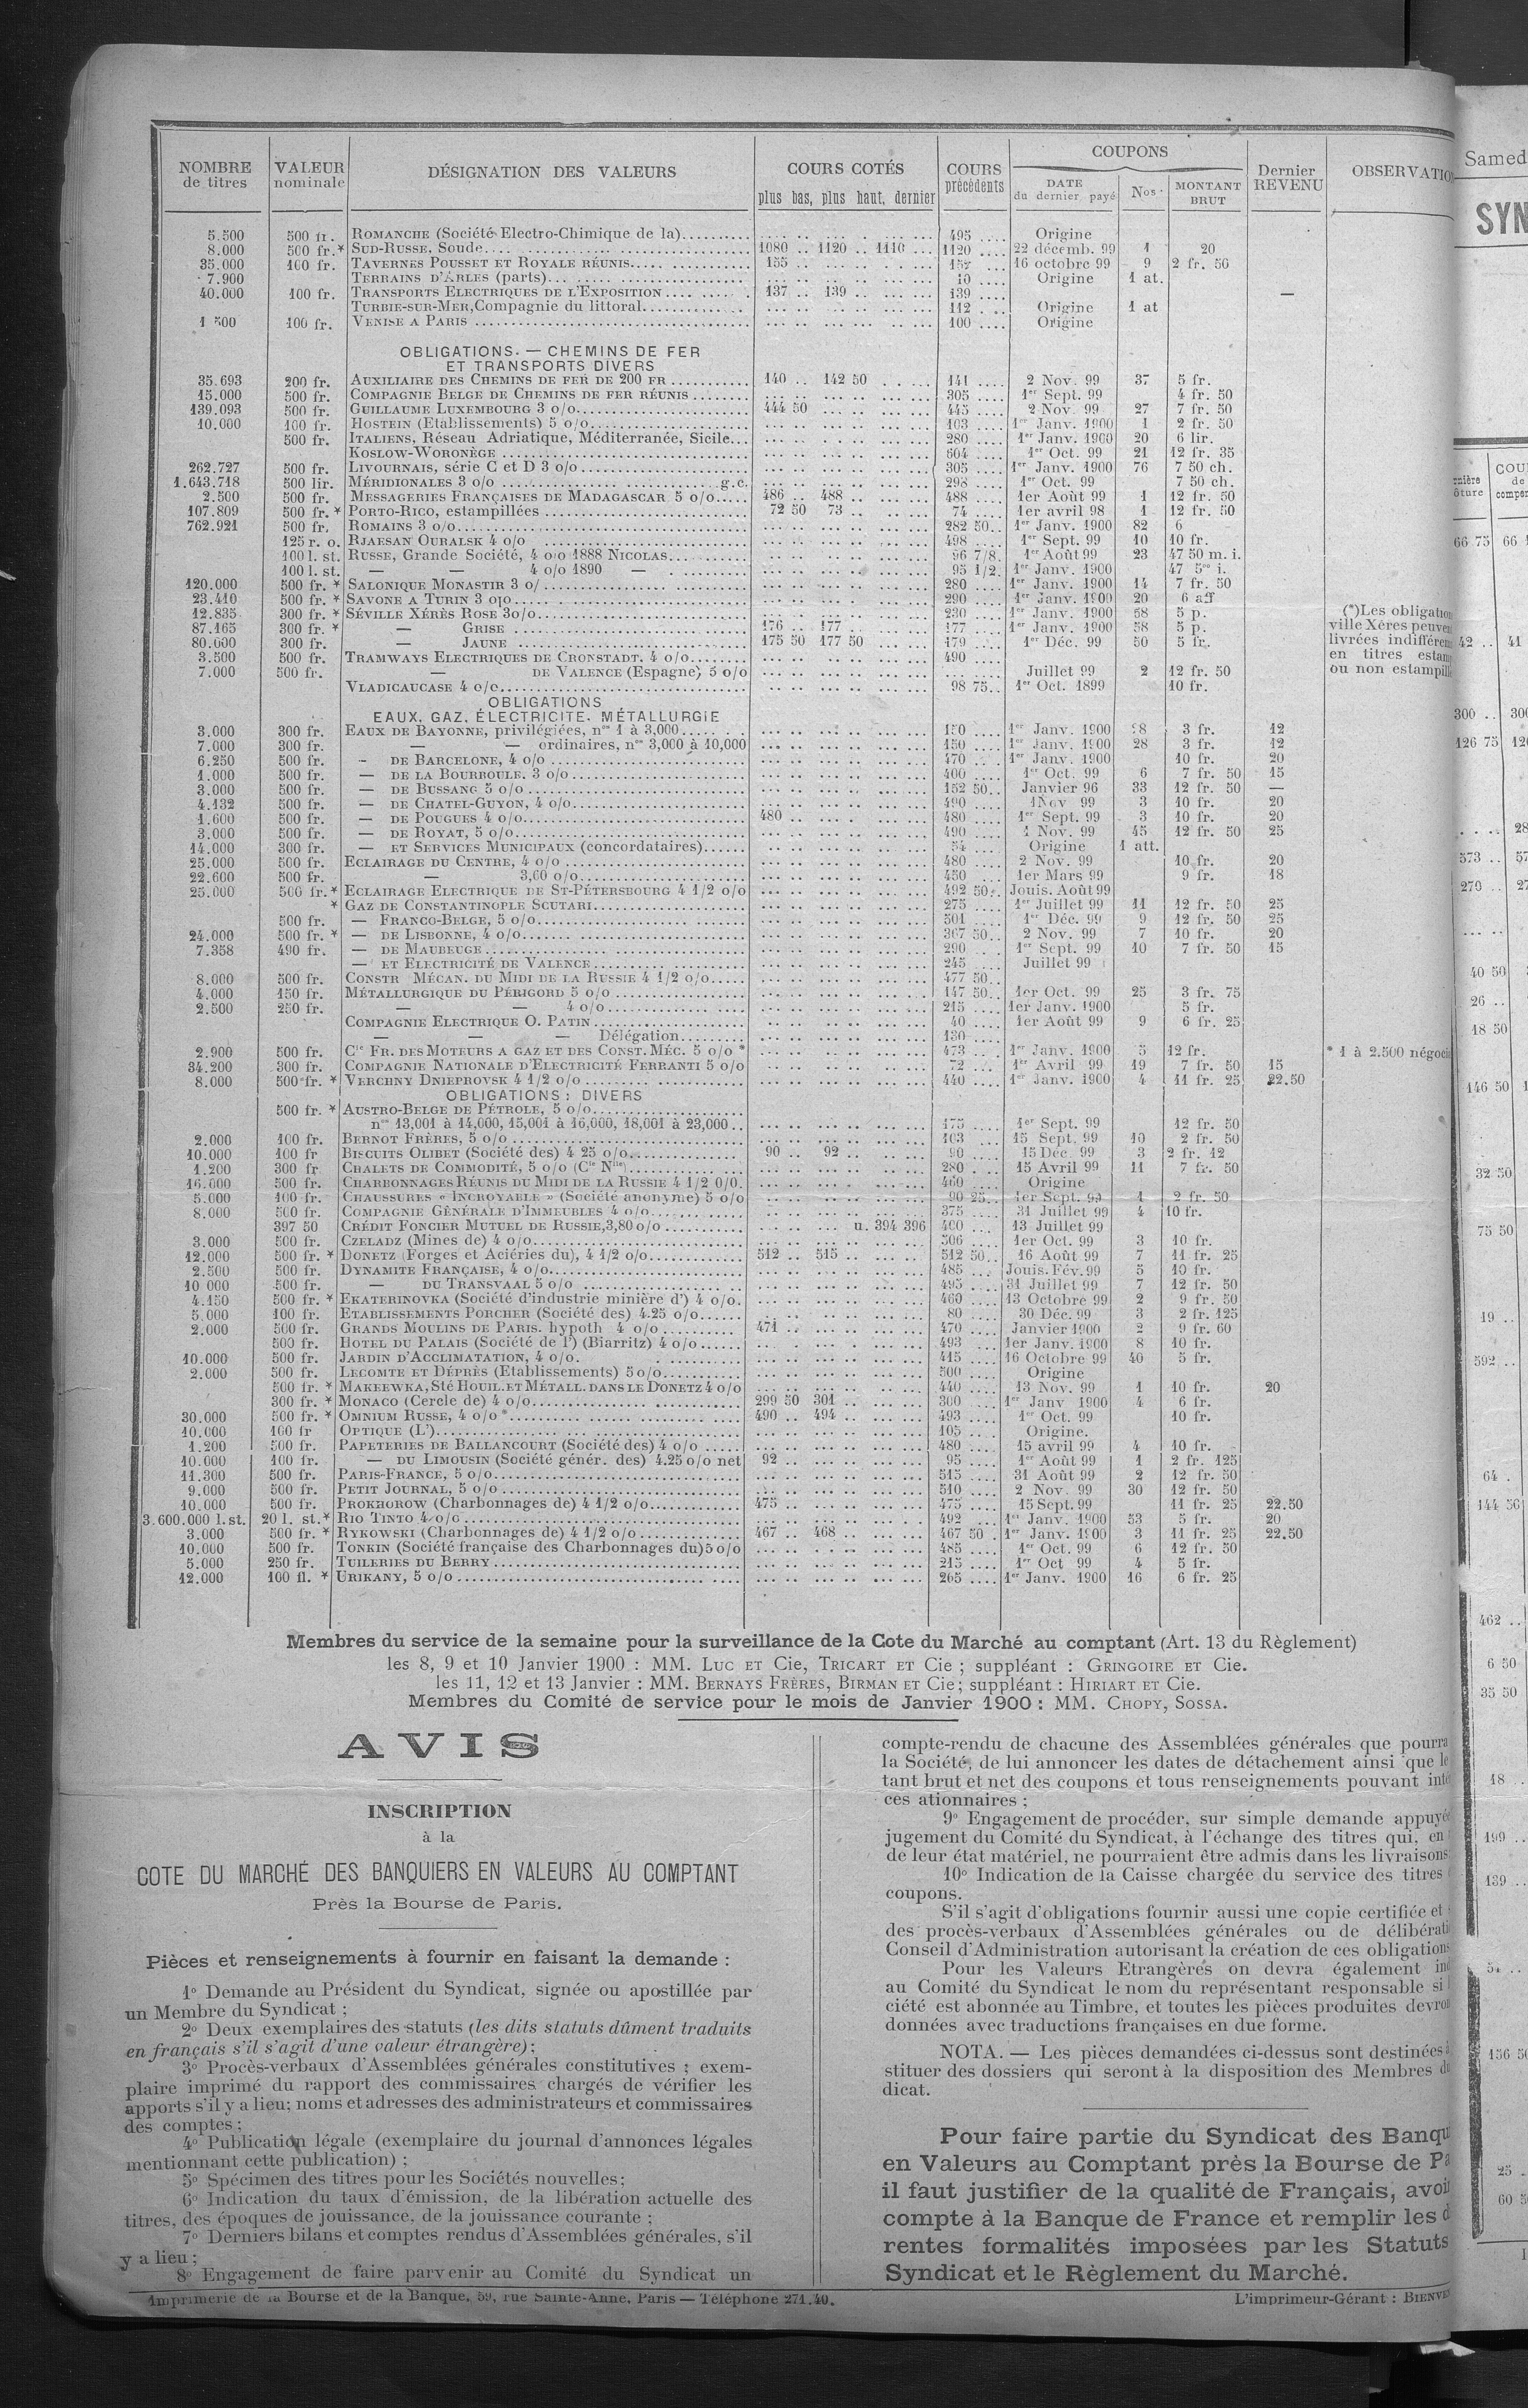 NOMBRE de titres | VALEUR nominale | DÉSIGNATION DES VALEURS | COURS COTÉS plus bas, plus haut, dernier | COURS précédents | COUPONS DATE du dernier payé | Nos | MONTANT BRUT | Dernier REVENU | OBSERVATIO
5.500 500 fr. ROMANCHE (Société Electro-Chimique de la) 495 Origine
8.000 500 fr.* SUD-RUSSE, Soude 1080 .. 1120 .. 1110 1120 22 décemb. 99 1 20
35.000 100 fr. TAVERNES POUSSET ET ROYALE RÉUNIS 155 157 16 octobre 99 9 2 fr. 50
7.900 TERRAINS D'ARLES (parts) 10 Origine 1 at.
40.000 100 fr. TRANSPORTS ELECTRIQUES DE L'EXPOSITION 137 .. 139 139 —
TURBIE-SUR-MER, Compagnie du littoral 112 Origine 1 at
1 500 100 fr. VENISE A PARIS 100 Origine
OBLIGATIONS. — CHEMINS DE FER
ET TRANSPORTS DIVERS
35.693 200 fr. AUXILIAIRE DES CHEMINS DE FER DE 200 FR 140 .. 142 50 141 2 Nov. 99 37 5 fr.
15.000 500 fr. COMPAGNIE BELGE DE CHEMINS DE FER RÉUNIS 305 1er Sept. 99 4 fr. 50
139.093 500 fr. GUILLAUME LUXEMBOURG 3 o/o 444 50 445 2 Nov. 99 27 7 fr. 50
10.000 100 fr. HOSTEIN (Etablissements) 5 o/o 103 1er Janv. 1900 1 2 fr. 50
500 fr. ITALIENS, Réseau Adriatique, Méditerranée, Sicile 280 1er Janv. 1900 20 6 lir.
KOSLOW-WORONÈGE 604 1er Oct. 99 21 12 fr. 35
262.727 500 fr. LIVOURNAIS, série C et D 3 o/o 305 1er Janv. 1900 76 7 50 ch.
1.643.718 500 lir. MÉRIDIONALES 3 o/o g.c. 298 1er Oct. 99 7 50 ch.
2.500 500 fr. MESSAGERIES FRANÇAISES DE MADAGASCAR 5 o/o 486 .. 488 488 1er Août 99 1 12 fr. 50
107.809 500 fr.* PORTO-RICO, estampillées 72 50 73 74 1er avril 98 1 12 fr. 50
762.921 500 fr. ROMAINS 3 o/o 282 50 1er Janv. 1900 82 6
125 r. o. RJAESAN OURALSK 4 o/o 498 1er Sept. 99 10 10 fr.
100 l. st. RUSSE, Grande Société, 4 o/o 1888 NICOLAS 96 7/8 1er Août 99 23 47 50 m. i.
100 l. st. — — 4 o/o 1890 — 95 1/2 1er Janv. 1900 47 500 i.
120.000 500 fr.* SALONIQUE MONASTIR 3 o/ 280 1er Janv. 1900 14 7 fr. 50
23.410 500 fr.* SAVONE A TURIN 3 o/o 290 1er Janv. 1900 20 6 aff
12.835 300 fr.* SÉVILLE XÉRÈS ROSE 3o/o 230 1er Janv. 1900 58 5 p. (*)Les obligation
87.165 300 fr.* — GRISE 176 .. 177 177 1er Janv. 1900 58 5 p. ville Xéres peuven
80.600 300 fr. — JAUNE 175 50 177 50 179 1er Déc. 99 50 5 fr. livrées indifférem
3.500 500 fr. TRAMWAYS ELECTRIQUES DE CRONSTADT. 4 o/o 490 en titres estam
7.000 500 fr. — DE VALENCE (Espagne) 5 o/o Juillet 99 2 12 fr. 50 ou non estampill
VLADICAUCASE 4 o/o 98 75 1er Oct. 1899 10 fr.
OBLIGATIONS
EAUX, GAZ, ÉLECTRICITE. MÉTALLURGIE
3.000 300 fr. EAUX DE BAYONNE, privilégiées, nos 1 à 3,000 150 1er Janv. 1900 28 3 fr. 12
7.000 300 fr. — — ordinaires, nos 3,000 à 10,000 150 1er Janv. 1900 28 3 fr. 12
6.250 500 fr. — DE BARCELONE, 4 o/o 470 1er Janv. 1900 10 fr. 20
1.000 500 fr. — DE LA BOURBOULE. 3 o/o 400 1er Oct. 99 6 7 fr. 50 15
3.000 500 fr. — DE BUSSANG 5 o/o 152 50 Janvier 96 33 12 fr. 50 —
4.132 500 fr. — DE CHATEL-GUYON, 4 o/o 490 1 Nov 99 3 10 fr. 20
1.600 500 fr. — DE POUGUES 4 o/o 480 480 1er Sept. 99 3 10 fr. 20
3.000 500 fr. — DE ROYAT, 5 o/o 490 1 Nov. 99 45 12 fr. 50 25
14.000 300 fr. — ET SERVICES MUNICIPAUX (concordataires) 54 Origine 1 att.
25.000 500 fr. ECLAIRAGE DU CENTRE, 4 o/o 480 2 Nov. 99 10 fr. 20
22.600 500 fr. — 3,60 o/o 450 1er Mars 99 9 fr. 18
25.000 500 fr.* ECLAIRAGE ELECTRIQUE DE ST-PÉTERSBOURG 4 1/2 o/o 492 50 Jouis. Août 99
* GAZ DE CONSTANTINOPLE SCUTARI 275 1er Juillet 99 11 12 fr. 50 25
500 fr. — FRANCO-BELGE, 5 o/o 501 1er Déc. 99 9 12 fr. 50 25
24.000 500 fr.* — DE LISBONNE, 4 o/o 367 50 2 Nov. 99 7 10 fr. 20
7.358 490 fr. — DE MAUBEUGE 290 1er Sept. 99 10 7 fr. 50 15
— ET ELECTRICITÉ DE VALENCE 245 Juillet 99
8.000 500 fr. CONSTR MÉCAN. DU MIDI DE LA RUSSIE 4 1/2 o/o 477 50
4.000 150 fr. MÉTALLURGIQUE DU PÉRIGORD 5 o/o 147 50 1er Oct. 99 25 3 fr. 75
2.500 250 fr. — — 4 o/o 215 1er Janv. 1900 5 fr.
COMPAGNIE ELECTRIQUE O. PATIN 40 1er Août 99 9 6 fr. 25
— — — Délégation 130
2.900 500 fr. Cie FR. DES MOTEURS A GAZ ET DES CONST. MÉC. 5 o/o * 473 1er Janv. 1900 5 12 fr. * 1 à 2.500 négoci
34.200 300 fr. COMPAGNIE NATIONALE D'ELECTRICITÉ FERRANTI 5 o/o 72 1er Avril 99 19 7 fr. 50 15
8.000 500 fr.* VERCHNY DNIEPROVSK 4 1/2 o/o 440 1er Janv. 1900 4 11 fr. 25 22.50
OBLIGATIONS : DIVERS
500 fr.* AUSTRO-BELGE DE PÉTROLE, 5 o/o
nos 13,001 à 14,000, 15,001 à 16,000, 18,001 à 23,000 475 1er Sept. 99 12 fr. 50
2.000 100 fr. BERNOT FRÈRES, 5 o/o 103 15 Sept. 99 10 2 fr. 50
10.000 100 fr BISCUITS OLIBET (Société des) 4 25 o/o 90 .. 92 90 15 Déc. 99 3 2 fr. 12
1.200 300 fr CHALETS DE COMMODITÉ, 5 o/o (Cie Nlle) 280 15 Avril 99 11 7 fr. 50
16.000 500 fr. CHARBONNAGES RÉUNIS DU MIDI DE LA RUSSIE 4 1/2 0/0 460 Origine
5.000 100 fr. CHAUSSURES « INCROYABLE » (Société anonyme) 5 o/o 90 25 1er Sept. 99 1 2 fr. 50
8.000 500 fr. COMPAGNIE GÉNÉRALE D'IMMEUBLES 4 o/o 375 31 Juillet 99 4 10 fr.
397 50 CRÉDIT FONCIER MUTUEL DE RUSSIE, 3,80 o/o u. 394 396 400 13 Juillet 99
3.000 500 fr. CZELADZ (Mines de) 4 o/o 506 1er Oct. 99 3 10 fr.
12.000 500 fr.* DONETZ (Forges et Aciéries du), 4 1/2 o/o 512 .. 515 512 50 16 Août 99 7 11 fr. 25
2.500 500 fr. DYNAMITE FRANÇAISE, 4 o/o 485 Jouis. Fév. 99 5 10 fr.
10 000 500 fr. — DU TRANSVAAL 5 o/o 495 31 Juillet 99 7 12 fr. 50
4.150 500 fr.* EKATERINOVKA (Société d'industrie minière d') 4 o/o. 460 13 Octobre 99 2 9 fr. 50
5.000 100 fr. ETABLISSEMENTS PORCHER (Société des) 4.25 o/o 80 30 Déc. 99 3 2 fr. 125
2.000 500 fr. GRANDS MOULINS DE PARIS. hypoth 4 o/o 471 470 Janvier 1900 2 9 fr. 60
500 fr. HOTEL DU PALAIS (Société de l') (Biarritz) 4 o/o 493 1er Janv. 1900 8 10 fr.
10.000 500 fr. JARDIN D'ACCLIMATATION, 4 o/o. 415 16 Octobre 99 40 5 fr.
2.000 500 fr. LECOMTE ET DÉPRÈS (Etablissements) 5 o/o 500 Origine
500 fr.* MAKEEWKA, Sté HOUIL. ET MÉTALL. DANS LE DONETZ 4 o/o 440 13 Nov. 99 1 10 fr. 20
300 fr.* MONACO (Cercle de) 4 o/o 299 50 301 300 1er Janv 1900 4 6 fr.
30.000 500 fr.* OMNIUM RUSSE, 4 o/o * 490 .. 494 493 1er Oct. 99 10 fr.
10.000 100 fr OPTIQUE (L') 105 Origine.
1.200 500 fr. PAPETERIES DE BALLANCOURT (Société des) 4 o/o 480 15 avril 99 4 10 fr.
10.000 100 fr. — DU LIMOUSIN (Société génér. des) 4.25 o/o net 92 95 1er Août 99 1 2 fr. 125
11.300 500 fr. PARIS-FRANCE, 5 o/o 515 31 Août 99 2 12 fr. 50
9.000 500 fr. PETIT JOURNAL, 5 o/o 510 2 Nov. 99 30 12 fr. 50
10.000 500 fr. PROKHOROW (Charbonnages de) 4 1/2 o/o 475 475 15 Sept. 99 11 fr. 25 22.50
3.600.000 l.st. 20 l. st.* RIO TINTO 4 o/o 492 1er Janv. 1900 53 5 fr. 20
3.000 500 fr.* RYKOWSKI (Charbonnages de) 4 1/2 o/o 467 .. 468 467 50 1er Janv. 1900 3 11 fr. 25 22.50
10.000 500 fr. TONKIN (Société française des Charbonnages du) 5 o/o 485 1er Oct. 99 6 12 fr. 50
5.000 250 fr. TUILERIES DU BERRY 215 1er Oct 99 4 5 fr.
12.000 100 fl. * URIKANY, 5 o/o 265 1er Janv. 1900 16 6 fr. 25
Membres du service de la semaine pour la surveillance de la Cote du Marché au comptant (Art. 13 du Règlement)
les 8, 9 et 10 Janvier 1900 : MM. LUC ET Cie, TRICART ET Cie ; suppléant : GRINGOIRE ET Cie.
les 11, 12 et 13 Janvier : MM. BERNAYS FRÈRES, BIRMAN ET Cie ; suppléant : HIRIART ET Cie.
Membres du Comité de service pour le mois de Janvier 1900 : MM. CHOPY, SOSSA.
AVIS
INSCRIPTION
à la
COTE DU MARCHÉ DES BANQUIERS EN VALEURS AU COMPTANT
Près la Bourse de Paris.
Pièces et renseignements à fournir en faisant la demande :
1o Demande au Président du Syndicat, signée ou apostillée par
un Membre du Syndicat ;
2o Deux exemplaires des statuts (les dits statuts dûment traduits
en français s'il s'agit d'une valeur étrangère) ;
3o Procès-verbaux d'Assemblées générales constitutives ; exem-
plaire imprimé du rapport des commissaires chargés de vérifier les
apports s'il y a lieu; noms et adresses des administrateurs et commissaires
des comptes ;
4o Publication légale (exemplaire du journal d'annonces légales
mentionnant cette publication) ;
5o Spécimen des titres pour les Sociétés nouvelles ;
6o Indication du taux d'émission, de la libération actuelle des
titres, des époques de jouissance, de la jouissance courante ;
7o Derniers bilans et comptes rendus d'Assemblées générales, s'il
y a lieu ;
8o Engagement de faire parvenir au Comité du Syndicat un
compte-rendu de chacune des Assemblées générales que pourra
la Société, de lui annoncer les dates de détachement ainsi que le
tant brut et net des coupons et tous renseignements pouvant inté
ces ationnaires ;
9o Engagement de procéder, sur simple demande appuyée
jugement du Comité du Syndicat, à l'échange des titres qui, en
de leur état matériel, ne pourraient être admis dans les livraisons
10o Indication de la Caisse chargée du service des titres
coupons.
S'il s'agit d'obligations fournir aussi une copie certifiée et
des procès-verbaux d'Assemblées générales ou de délibérati
Conseil d'Administration autorisant la création de ces obligations
Pour les Valeurs Etrangères on devra également ind
au Comité du Syndicat le nom du représentant responsable si l
ciété est abonnée au Timbre, et toutes les pièces produites devron
données avec traductions françaises en due forme.
NOTA. — Les pièces demandées ci-dessus sont destinées à
stituer des dossiers qui seront à la disposition des Membres du
dicat.
Pour faire partie du Syndicat des Banqu
en Valeurs au Comptant près la Bourse de Pa
il faut justifier de la qualité de Français, avoir
compte à la Banque de France et remplir les d
rentes formalités imposées par les Statuts
Syndicat et le Règlement du Marché.
Imprimerie de la Bourse et de la Banque, 59, rue Sainte-Anne, Paris — Téléphone 271.40.
L'imprimeur-Gérant : BIENVE
Samed
SYN